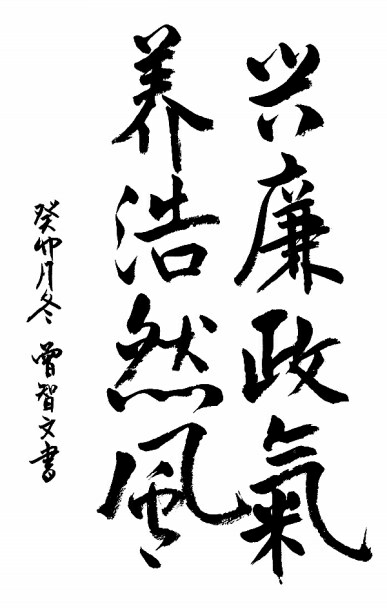 兴廉政氣
养浩然風
癸卯月冬 曾智文書